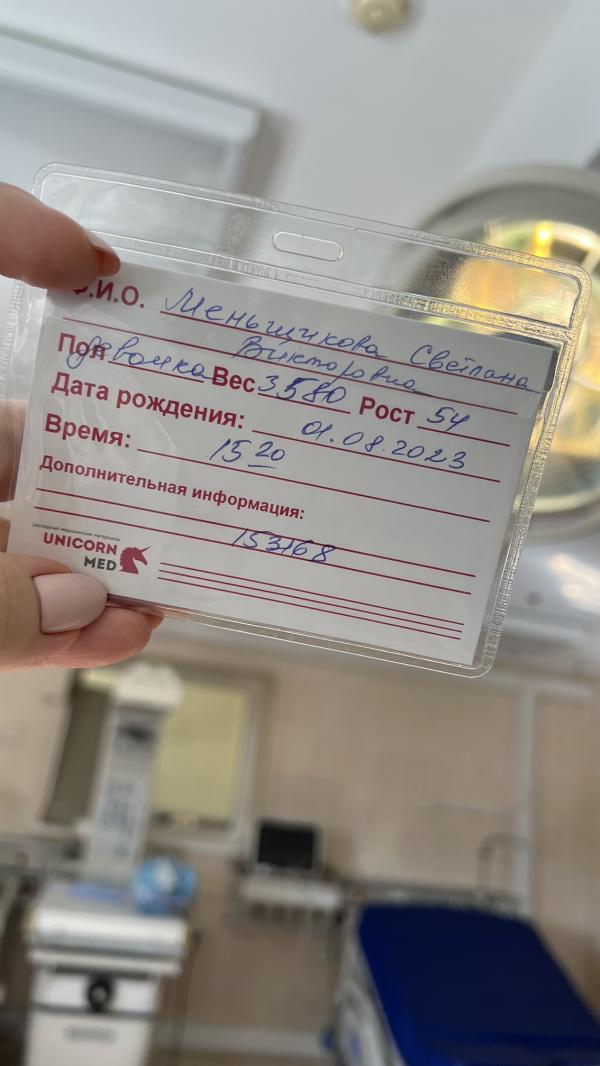 Ф.И.О. Меньщикова Светлана
Викторовна
Пол девочка Вес 3580 Рост 54
Дата рождения: 01.08.2023
Время: 15 20
Дополнительная информация:
153168
расходные медицинские материалы
UNICORN
MED